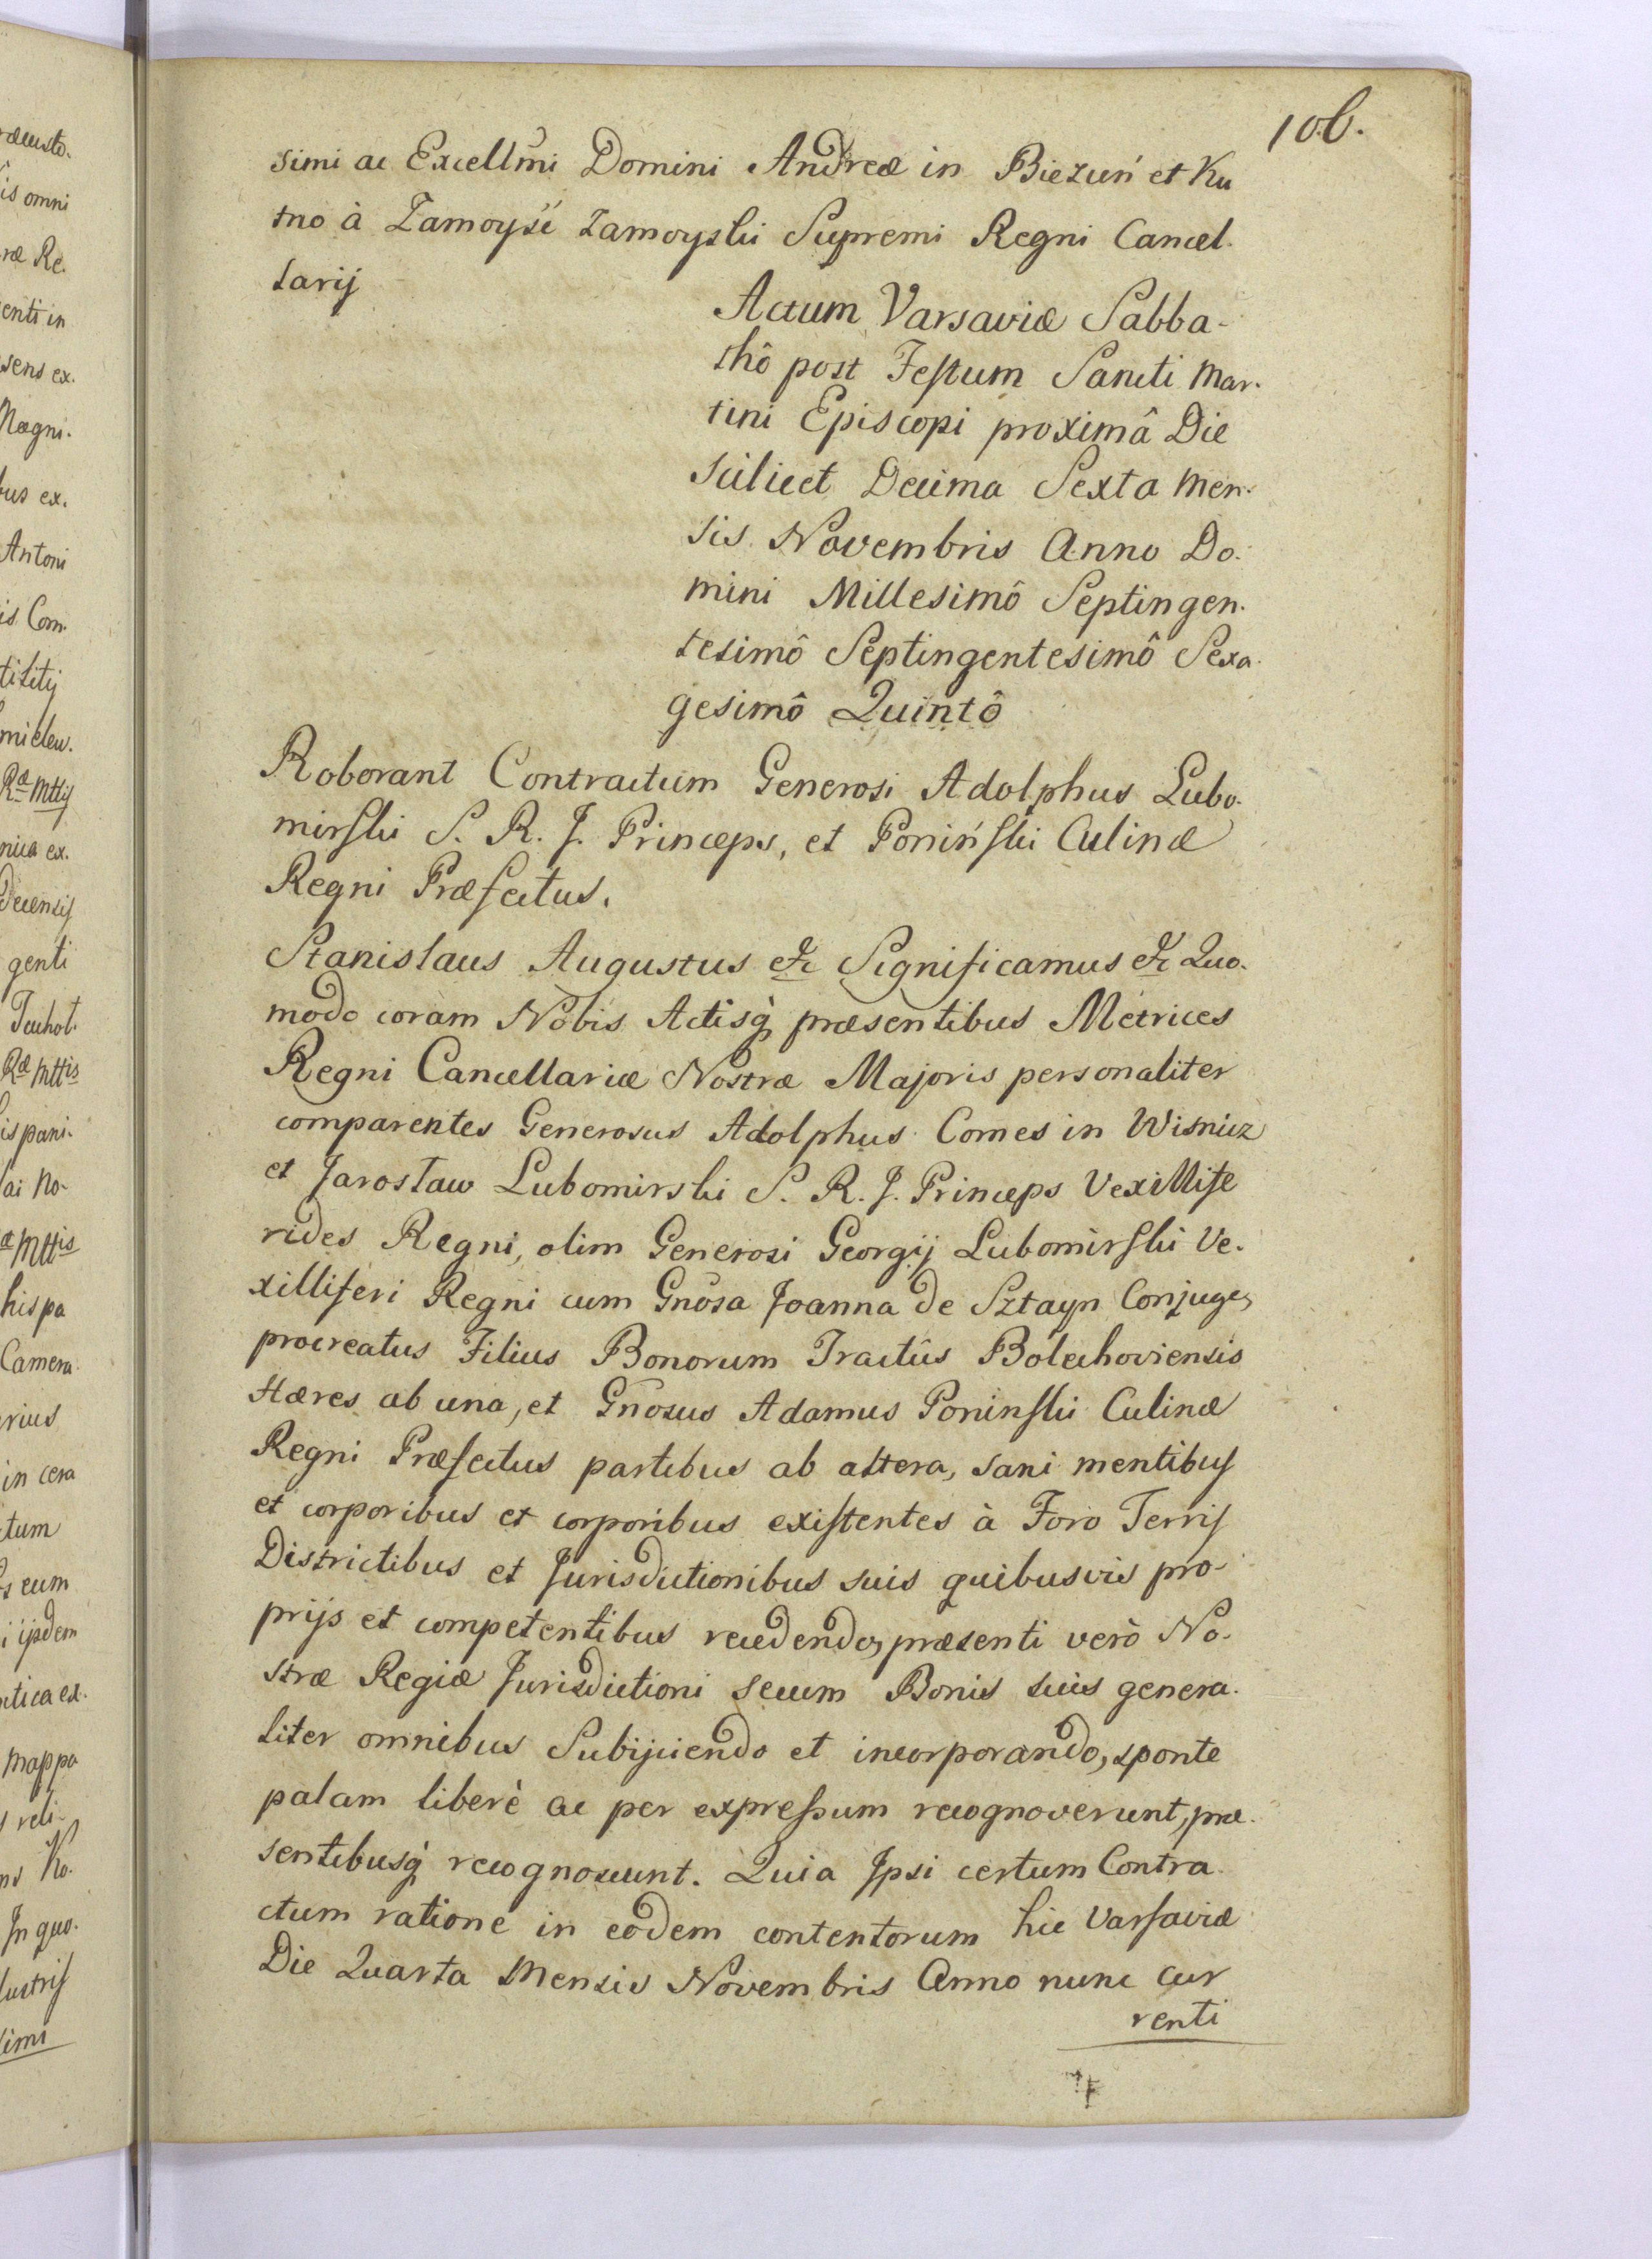 106.
simi ac Excellm̃i Domini Andreæ in Biezuń et Ku
tno à Zamoyśċ Zamoyski Supremi Regni Cancel-
larij
Actum Varsaviæ Sabba-
thô post Festum Sancti Mar-
tini Episcopi proximâ Die
scilicet Decima Sexta Men-
sis Novembris Anno Do-
mini Millesimô Septingen-
tesimô Septingentesimô Sexa-
gesimô Quintô
Roborant Contractum Generosi Adolphus Lubo-
mirski S. R. J. Princeps, et Poniński Culinæ
Regni Præfectus.
Stanislaus Augustus etc Significamus etc Quo-
modo coram Nobis Actisq̀ præsentibus Metrices
Regni Cancellariæ Nostræ Majoris personaliter
comparentes Generosus Adolphus Comes in Wisnicz
et Jarosław Lubomirski S. R. J. Princeps Vexillife
rides Regni, olim Generosi Georgij Lubomirski Ve-
xilliferi Regni cum Gnõsa Joanna de Sztayn Conjuge,
procreatus Filius Bonorum Tractûs Bolechoviensis
Hæres ab una, et Gñosus Adamus Poninski Culinæ
Regni Præfectus partibus ab altera, sani mentibus
et corporibus et corporibus existentes à Foro Terris
Districtibus et Jurisdictionibus suis quibusvis pro-
prijs et competentibus recedendo, præsenti verò No-
stræ Regiæ Jurisdictioni secum Bonis suis genera-
liter omnibus Subijciendo et incorporando, sponte
palam liberè ac per expressum recognoverunt, præ-
sentibusq̀ recognoscunt. Quia Jpsi certum Contra-
ctum ratione in eodem contentorum hic Varsaviæ
Die Quarta Mensis Novembris Anno nunc cur
renti
is omni
enti in
sens ex.
Magni-
bus ex.
Antoni
is Com-
genti
is pani-
his pa
Camera
rius
in cera
ctum
cum
i ijsdem
ntica ex-
mappa
reli-
Jn quo-
lustris
simi